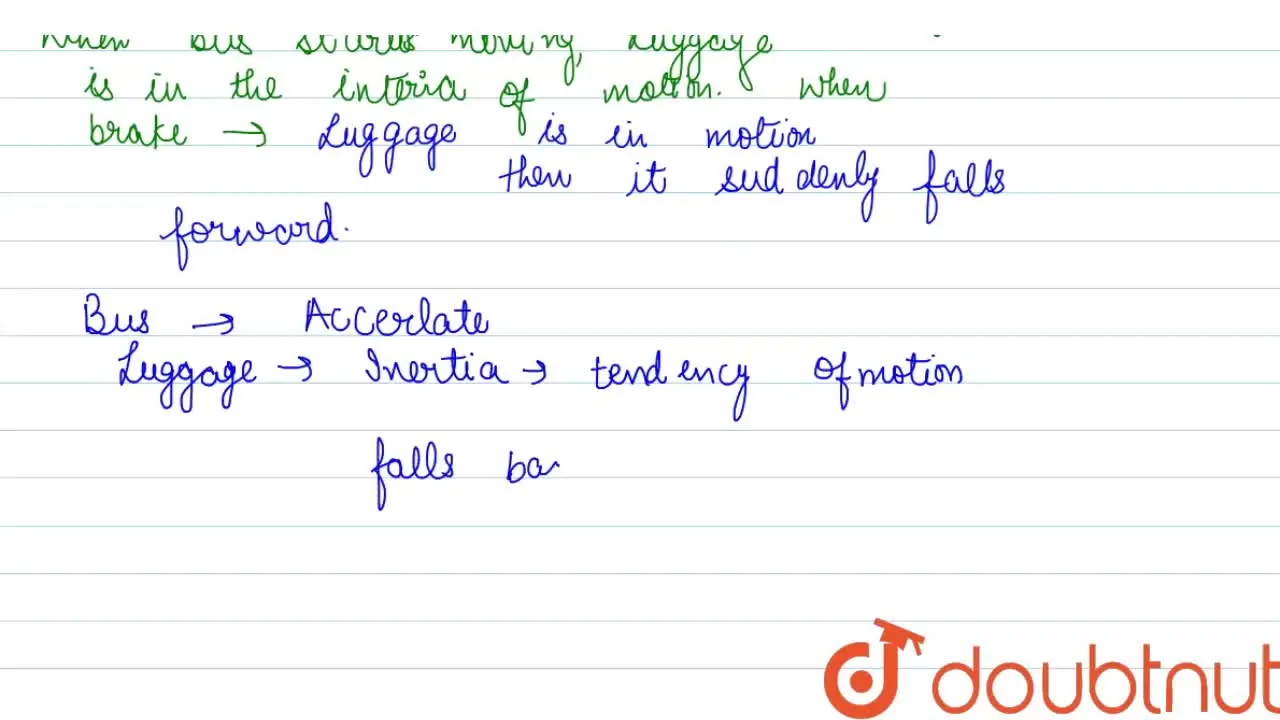 When Bus starts moving, Luggage
is in the interia of motion. When
brake → Luggage is in motion
then it suddenly falls
forward.
Bus → Accerlate
Luggage → Inertia → tendency of motion
falls ba
doubtnut